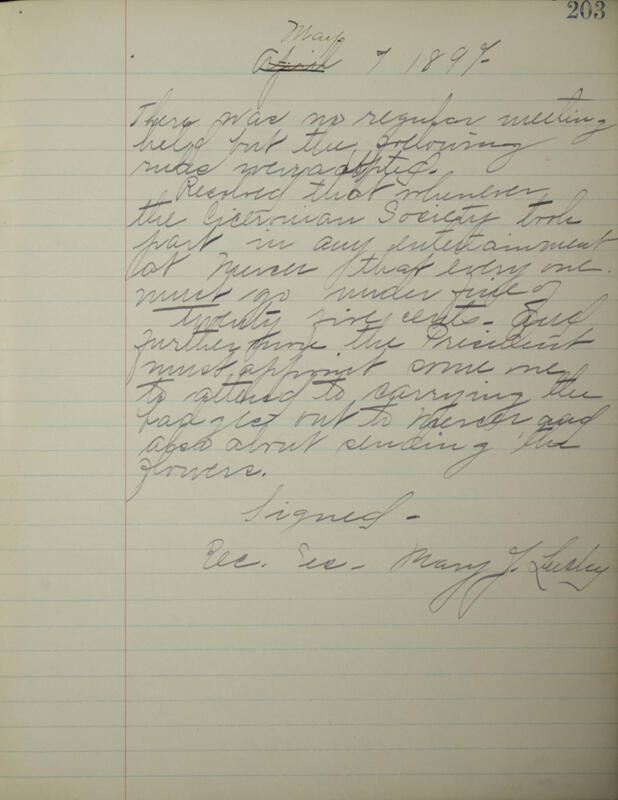 203
May
April 7 1897-
There was no regular meeting
held but the following
rules were adopted.
Resolved that whenever
the Ciceronian Society took
part in any entertainment
at Mercer that every one
must go under fine of
twenty five cents. And
further more the President
must appoint some one
to attend to carrying the
badges out to Mercer and
also about sending the
flowers.
Signed -
Rec. Sec - Mary J.